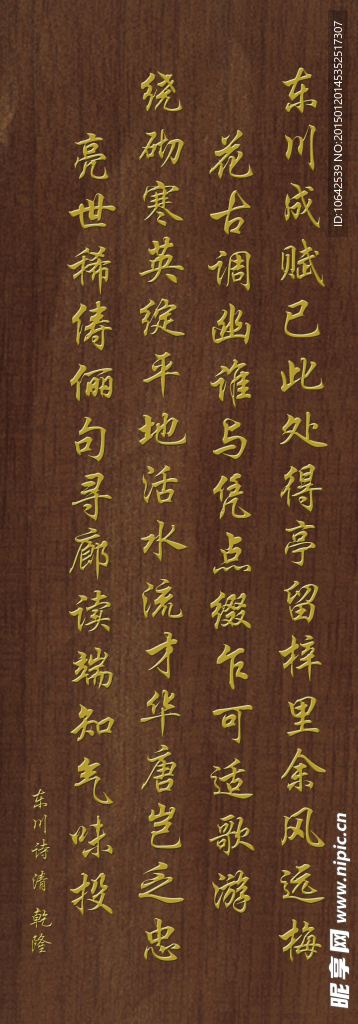 东川成赋已此处得亭留梓里余风远梅
花古调幽谁与凭点缀乍可适歌游
绕砌寒英绽平地活水流才华唐岂乏忠
亮世稀俦俪句寻廊读端知气味投
东川诗 清 乾隆
ID:10642539 NO:20150120145352517307
昵享网 www.nipic.cn